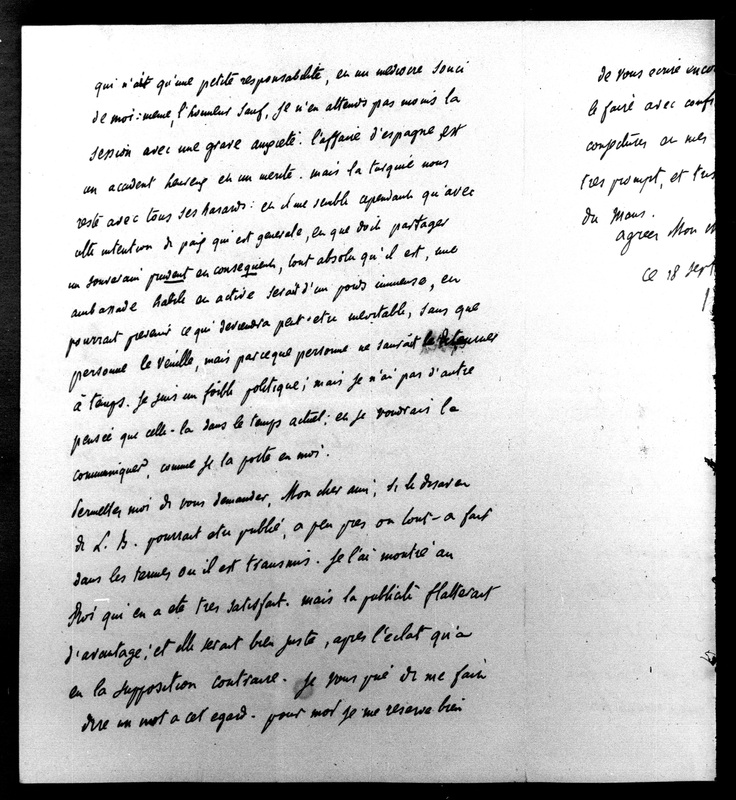 qui n'ait qu'une petite responsabilité, en un médiocre souci
de moi-même, l'honneur sauf, je n'en attends pas moins la
session avec une grave anxiété. l'affaire d'espagne est
un accident heureux en un mérité. mais la turquie nous
reste avec tous ses hasards: en il me semble cependant qu'avec
cette intention de paix qui est generale, en que doit partager
un souverain prudent en conséquent, tout absolu qu'il est, une
ambassade habile en active serait d'un poids immense, en
pourrait prevenir ce qui deviendra peut-etre inevitable, sans que
personne le veuille, mais parceque personne ne saurait le détourner
à temps. Je suis un foible politique; mais je n'ai pas d'autre
pensée que celle-la dans le temps actuel; en je voudrais la
communiquer, comme je la porte en moi.
Permettez moi de vous demander, Mon cher ami, si le desaveu
de L. B. pourrait etre publié, a peu pres ou tout-a fait
dans les termes ou il est transmis. Je l'ai montré au
Roi qui en a été tres satisfait. mais la publicité flatterait
d'avantage; et elle serait bien juste, apres l'eclat qu'a
eu la supposition contraire. Je vous prie de me faire
dire un mot a cet egard. pour moi je me reserve bien
de vous ecrire
le faire avec
conjectures ou mes
tres prompt, et
du Mans.
agréez Mon
ce 18 sept